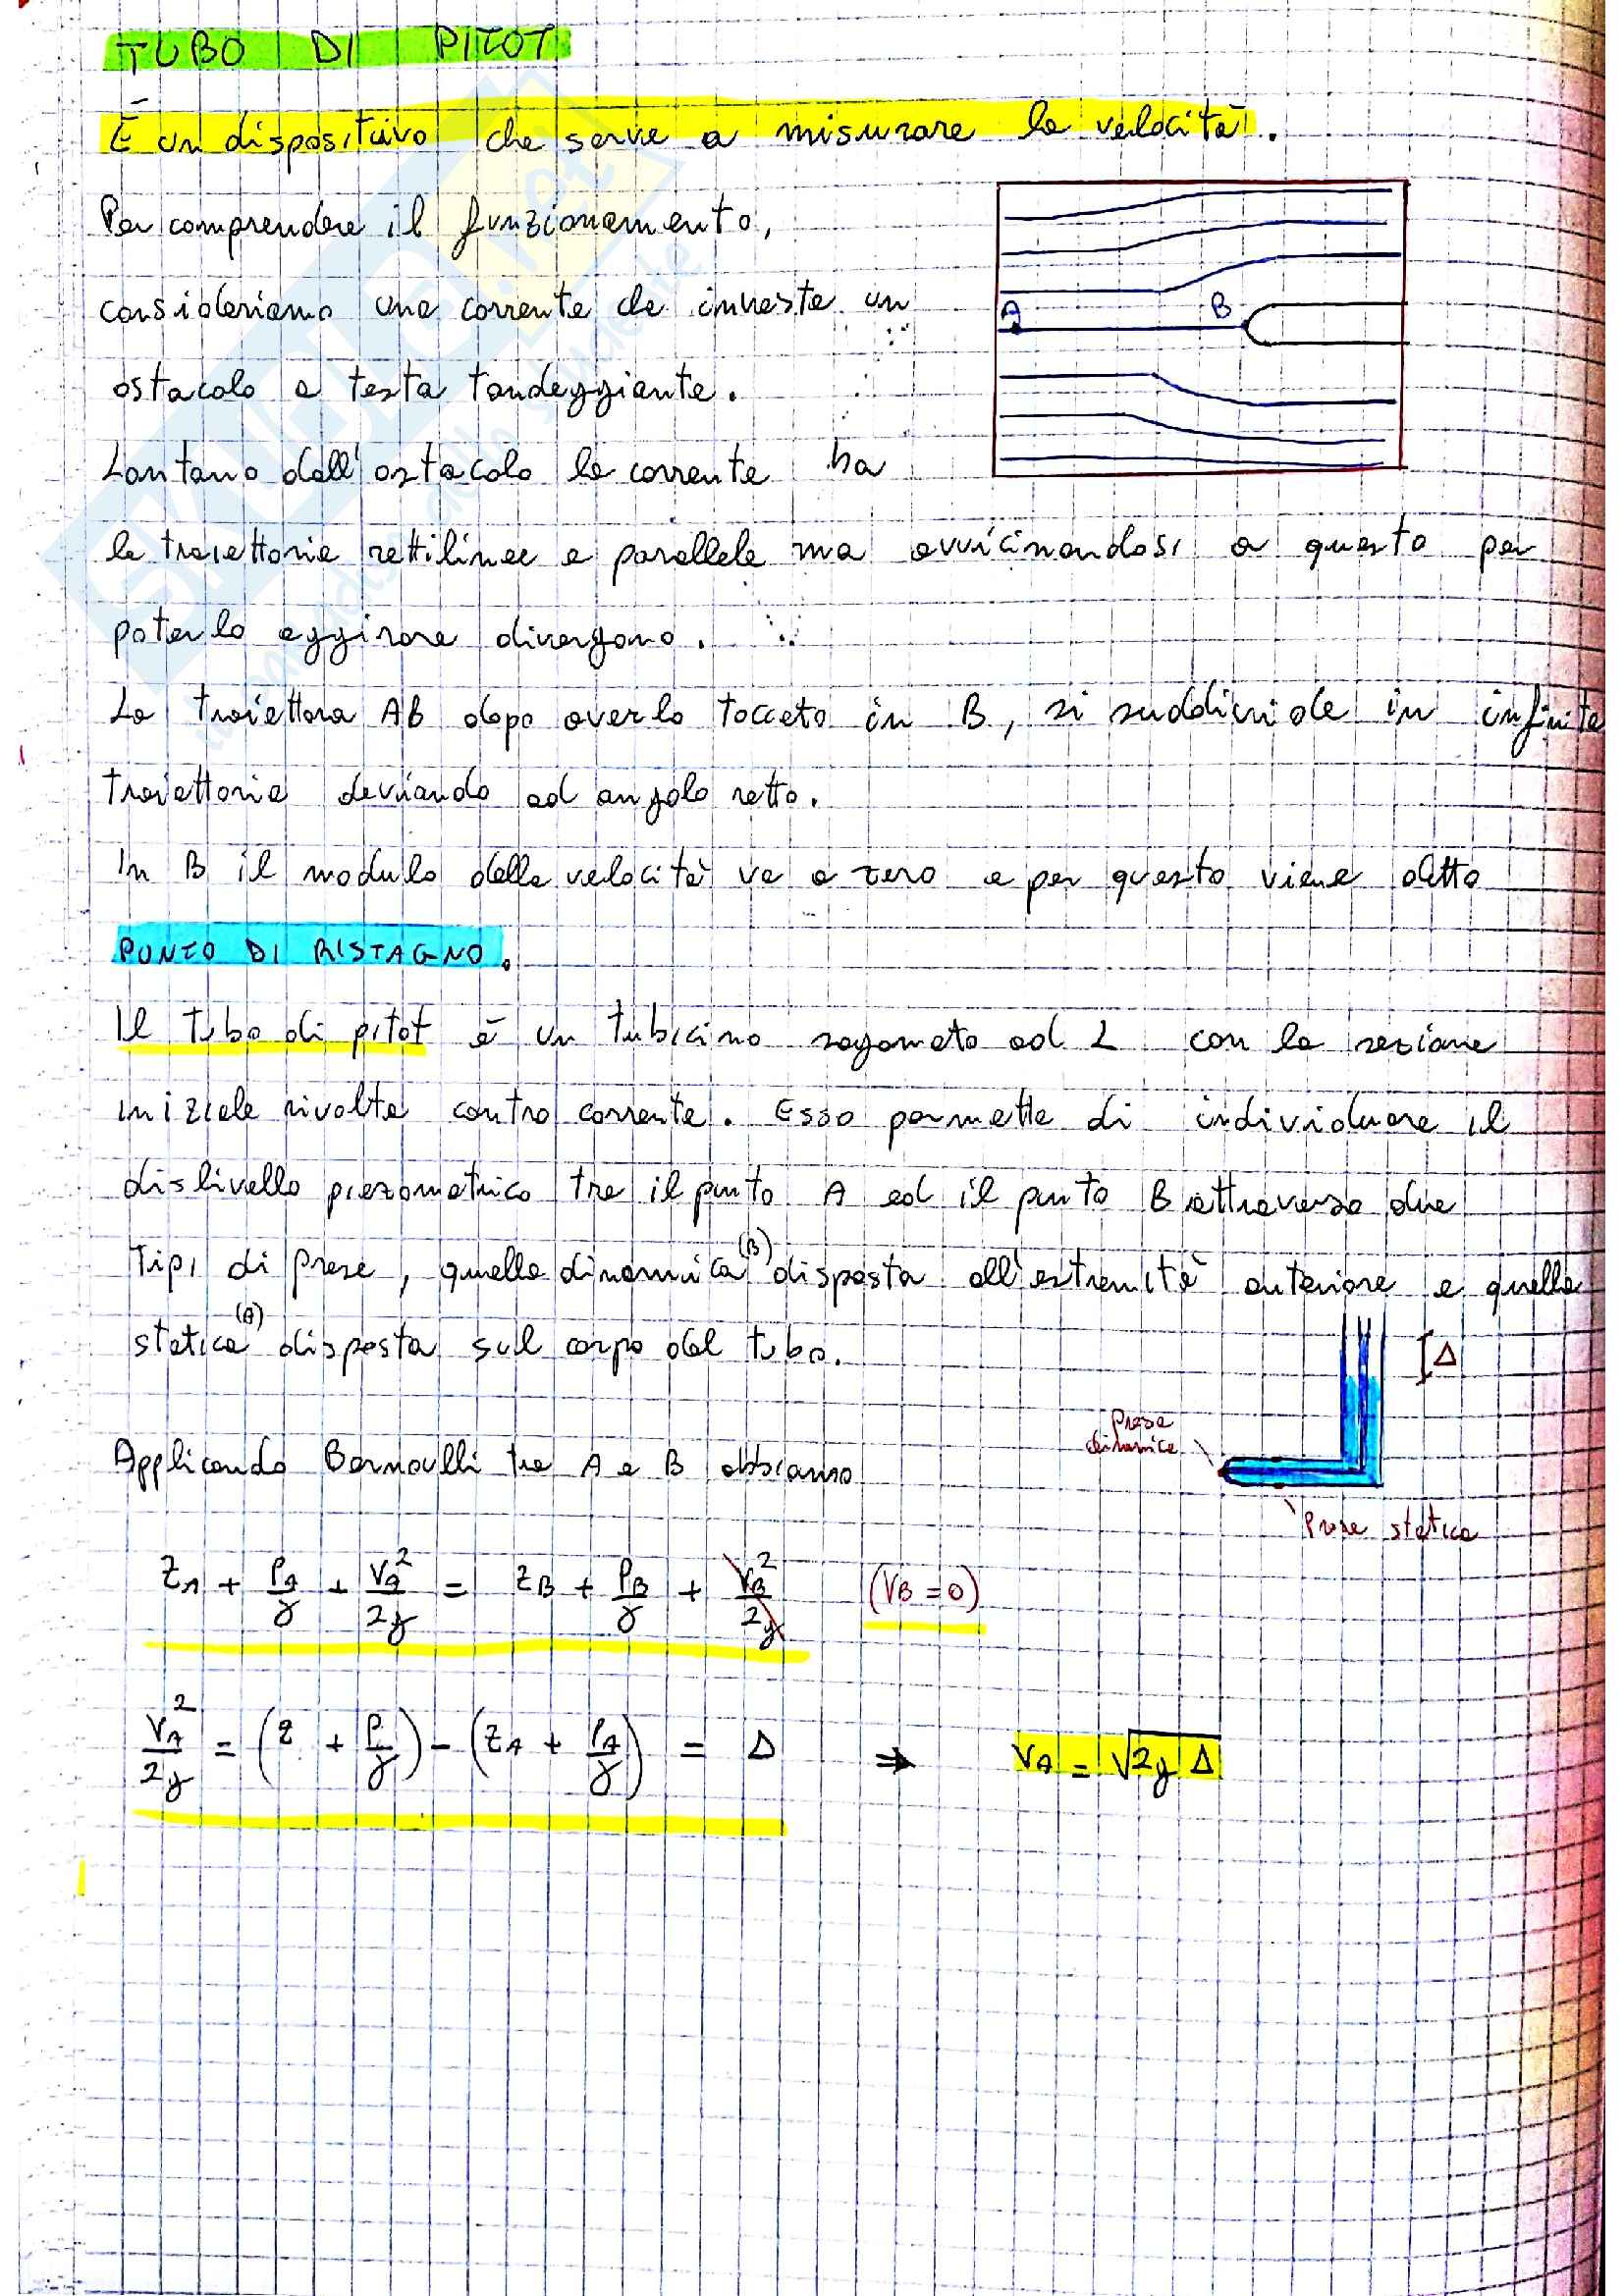 TUBO DI PITOT
È un dispositivo che serve a misurare la velocità.
Per comprendere il funzionamento,
A B
consideriamo una corrente che investe un
ostacolo a testa tondeggiante.
Lontano dall'ostacolo la corrente ha
le traiettorie rettilinee e parallele ma avvicinandosi a questo per
poterlo aggirare divergono.
La traiettoria AB dopo averlo toccato in B, si suddivide in infinite
traiettorie deviando ad angolo retto.
In B il modulo della velocità va a zero e per questo viene detto
PUNTO DI RISTAGNO.
Il tubo di pitot è un tubicino sagomato ad L con la sezione
iniziale rivolta contro corrente. Esso permette di individuare il
dislivello piezometrico tra il punto A ed il punto B attraverso due
tipi di prese, quella dinamica (B) disposta all'estremità anteriore e quella
statica (A) disposta sul corpo del tubo.
Δ
Presa
dinamica
Applicando Bernoulli tra A e B abbiamo
Presa statica
zA + PA/γ + VA²/2g = zB + PB/γ + VB²/2g (VB = 0)
VA²/2g = (z + P/γ) - (zA + PA/γ) = Δ ⇒ VA = √2g Δ